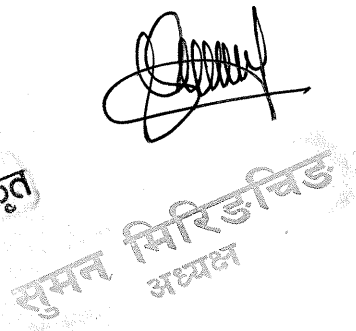 सुमन मिरिङचिङ
अध्यक्ष